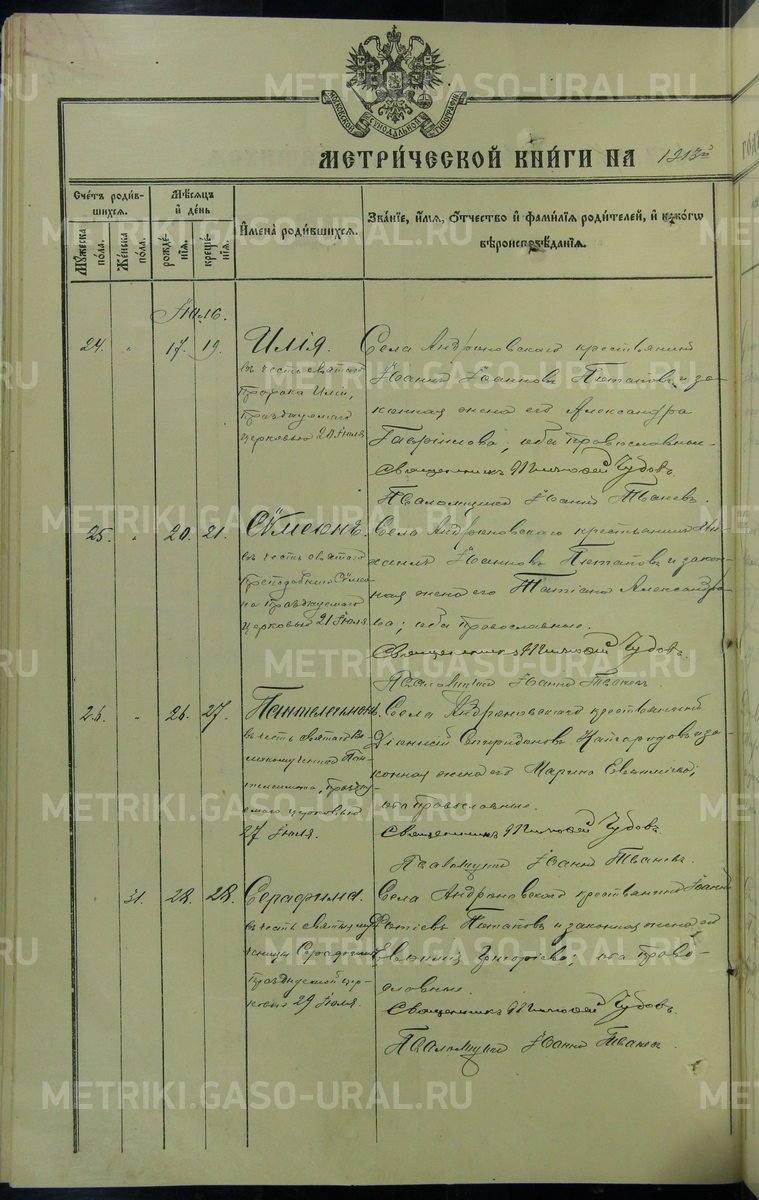 МОСКОВСКОЙ СѴНОДАЛЬНОЙ ТИПОГРАФІИ
МЕТРИ́ЧЕСКОЙ КНИ́ГИ НА 1913й
Сче́тъ роди́вшихся.
Му́жеска по́ла.
Же́нска по́ла.
Мѣ́сяцъ и де́нь
рожде́нїя.
креще́нїя.
И҆мена̀ роди́вшихся.
Зва́нїе, и҆́мѧ, ѻ҆́тчество и҆ фами́лїѧ роди́телей, и҆ како́гѡ
вѣроисповѣ́данїѧ.
Іюль.
24. " 17. 19. Илія.
въ честь святаго
Пророка Иліи,
празднуемаго
церковью 20 Іюля
Села Андроновскаго крестьянинъ
Іоаннъ Іоанновъ Потаповъ и за-
конная жена его Александра
Гавріилова; оба православные.
Священникъ Тимофей Чудовъ
Псаломщикъ Іоаннъ
25. " 20. 21. Сѵмеонъ.
въ честь святаго
Преподобнаго Сѵмео-
на празднуемаго
церковью 21 Іюля.
Села Андроновскаго крестьянинъ Ми-
хаилъ Іоанновъ Потаповъ и закон-
ная жена его Татіана Александро-
ва; оба православные.
Священникъ Тимофей Чудовъ.
Псаломщикъ Іоаннъ
26. " 26. 27. Пантелеимонъ.
въ честь святаго Ве-
ликомученика Пан-
телеимона, праздну-
емаго церковью
27 Іюля.
Села Андроновскаго крестьянинъ
Діонисій Спиридоновъ и за-
конная жена его Марина
оба православные.
Священникъ Тимофей Чудовъ.
Псаломщикъ Іоаннъ
31. 28. 28. Серафима.
въ честь святыя му-
ченицы Серафимы
празднуемой цер-
ковью 29 Іюля.
Села Андроновскаго крестьянинъ Іоаннъ
Потаповъ и законная жена его
Евдокія Григорьева; оба право-
славные.
Священникъ Тимофей Чудовъ.
Псаломщикъ Іоаннъ
METRIKI.GASO-URAL.RU